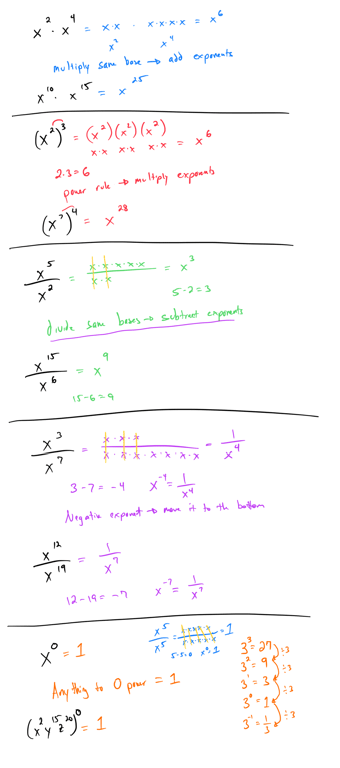 x² · x⁴ = x·x · x·x·x·x = x⁶
x² x⁴
multiply same base → add exponents
x¹⁰ · x¹⁵ = x²⁵
(x²)³ = (x²)(x²)(x²) = x⁶
x·x x·x x·x
2·3=6
power rule → multiply exponents
(x⁷)⁴ = x²⁸
x⁵/x² = x·x·x·x·x/x·x = x³
5-2=3
divide same bases → subtract exponents
x¹⁵/x⁶ = x⁹
15-6=9
x³/x⁷ = x·x·x/x·x·x·x·x·x·x = 1/x⁴
3-7=-4 x⁻⁴ = 1/x⁴
Negative exponent → move it to the bottom
x¹²/x¹⁹ = 1/x⁷
12-19=-7 x⁻⁷ = 1/x⁷
x⁰ = 1
x⁵/x⁵ = x·x·x·x·x/x·x·x·x·x = 1
5-5=0 x⁰=1
Anything to 0 power = 1
(x²y¹⁵z²⁰)⁰ = 1
3³ = 27
÷3
3² = 9
÷3
3¹ = 3
÷3
3⁰ = 1
÷3
3⁻¹ = 1/3